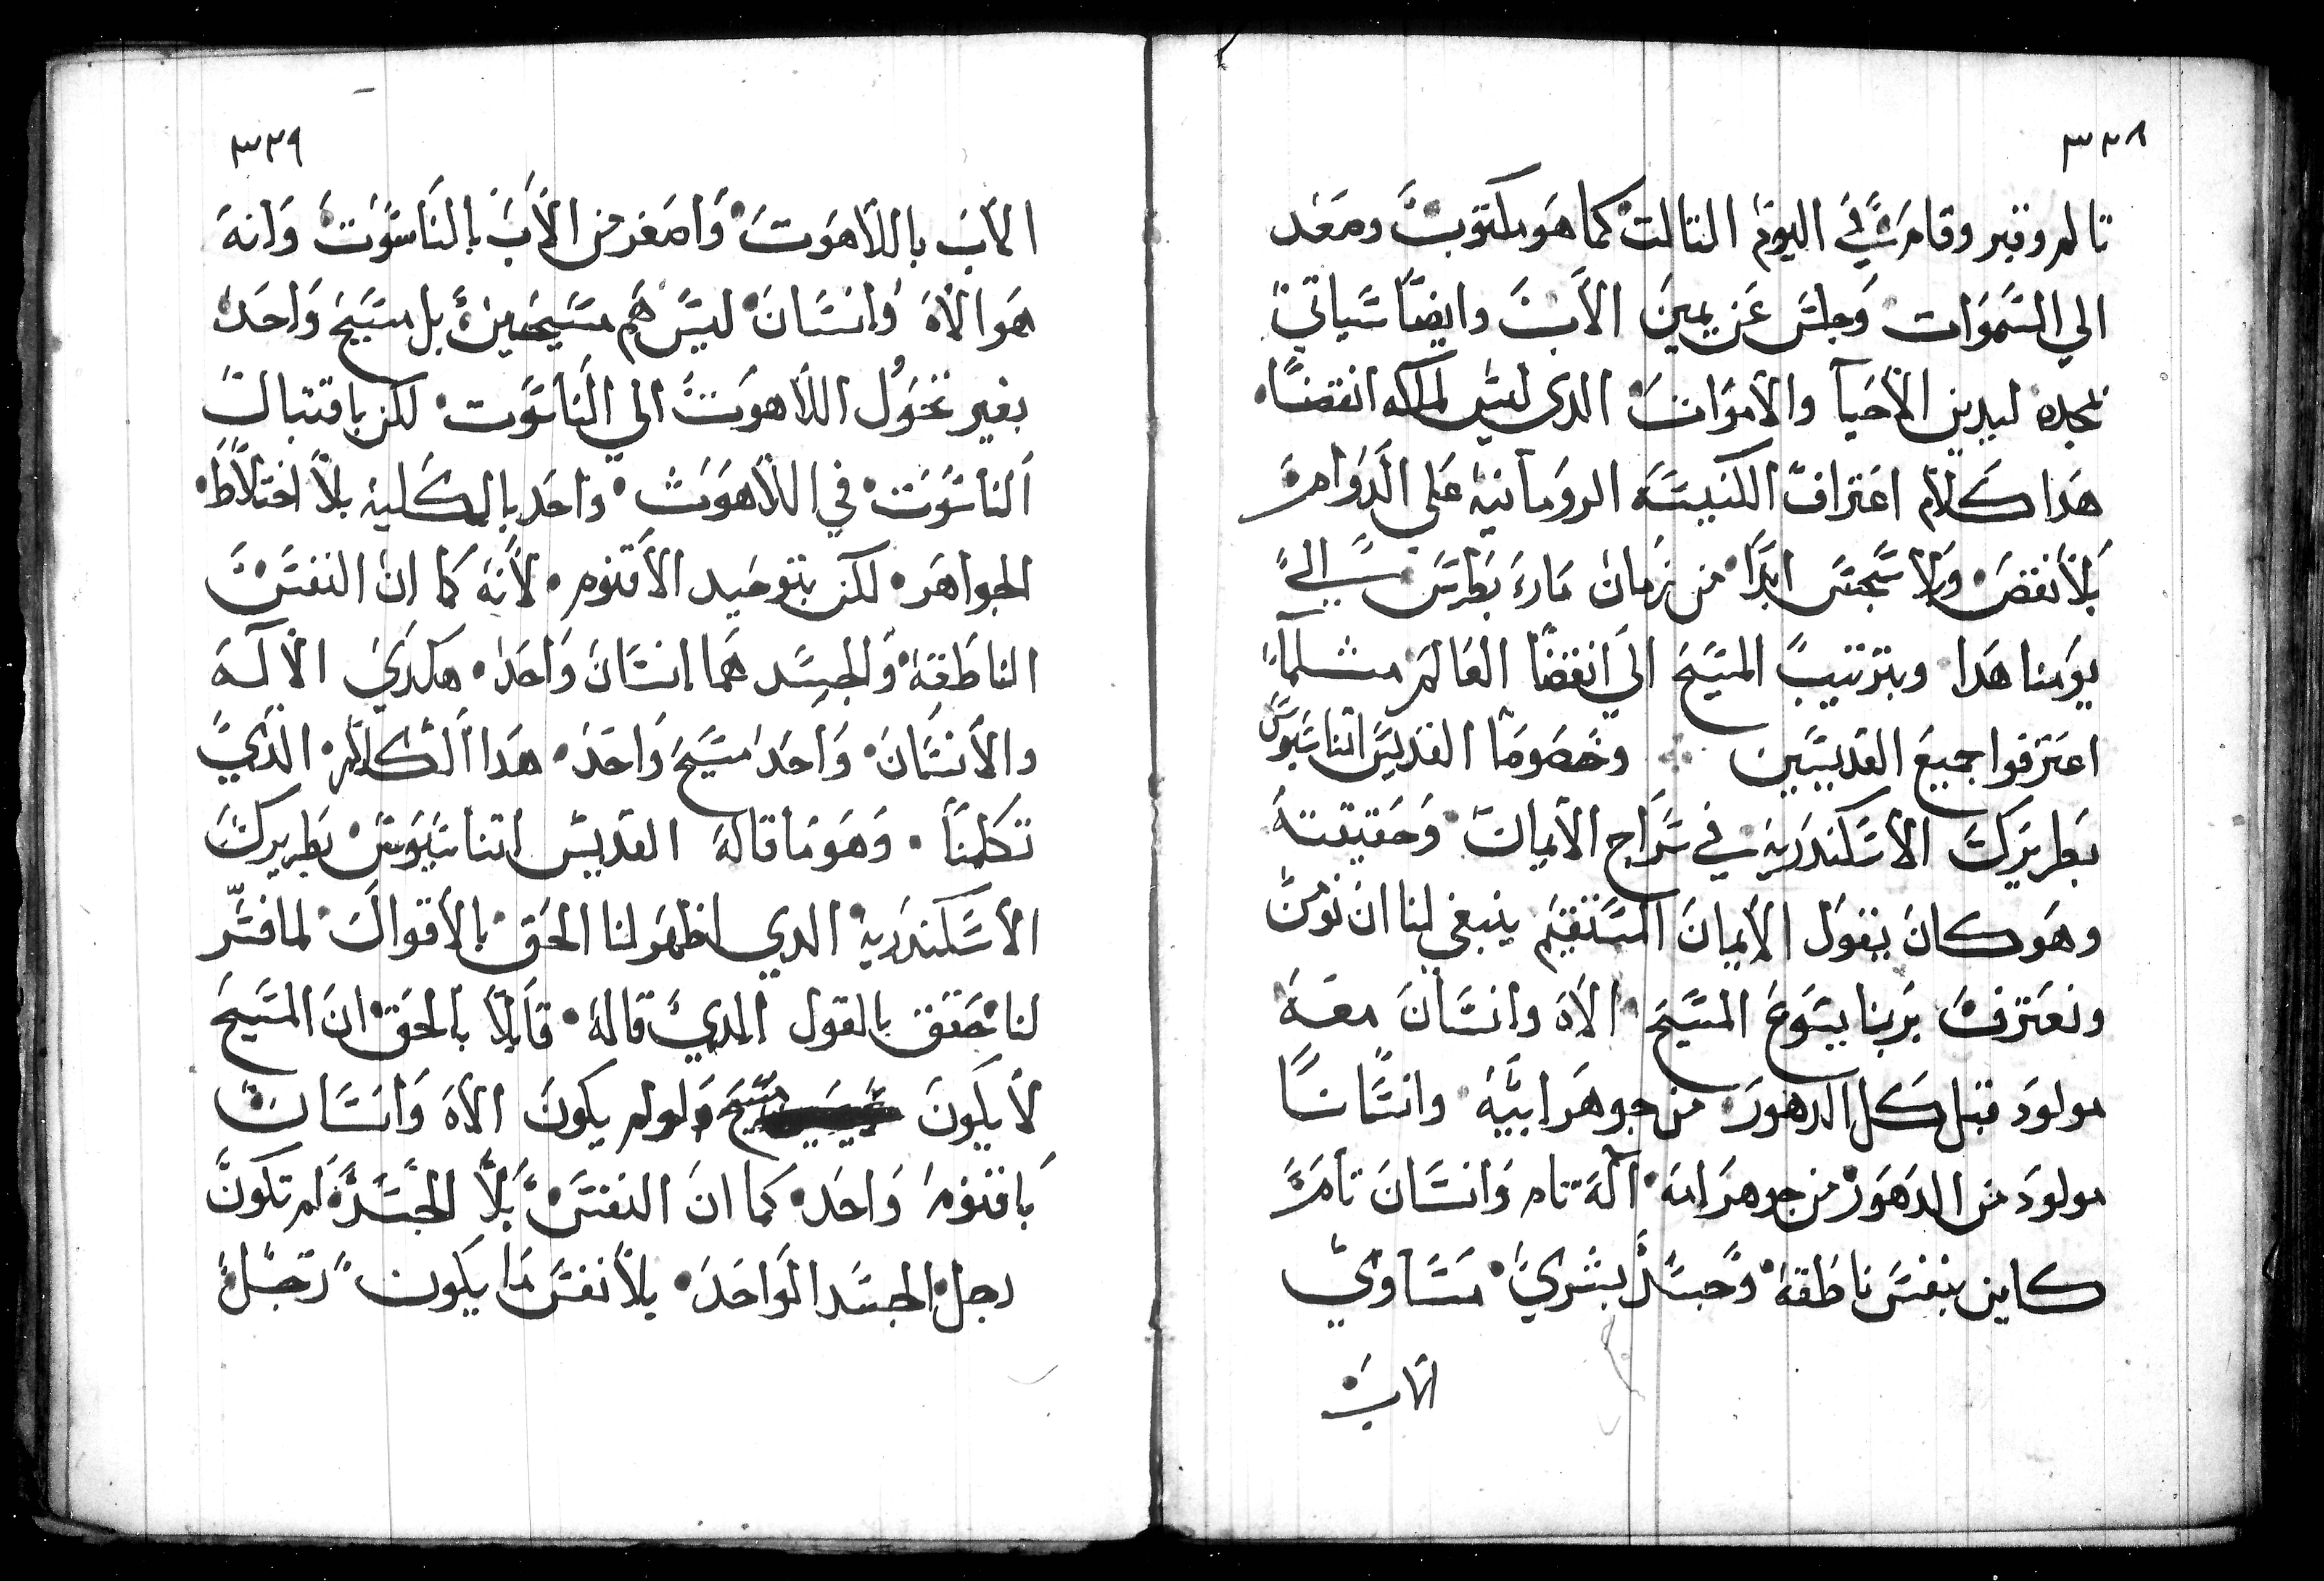 ٣٣٨
تالم وقبر وقام في اليوم التالت كما هو مكتوب وصعد
الي السموات وجلس عن يمين الاب وايضا سياتي
بمجده ليدين الاحيا والاموات الدى ليس لملكه انقضا
هدا كلام اعتراف الكنيسه الرومانيه على الدوام
بلا نقص ولا سجس ابدا من زمان مارى بطرس الي
يومنا هدا وبترتيب المسيح الي انقضا العالم مثلما
اعترفوا جميع القديسين وخصوصا القديس اتناسيوس
بطريرك الاسكندريه في سراج الايمان وحقيقته
وهو كان يقول الايمان المستقيم ينبغي لنا ان نومن
ونعترف بربنا يسوع المسيح الاه وانسان معه
مولود قبل كل الدهور من جوهر ابيه وانسانا
مولود من الدهور من جوهر امه اله تام وانسان تام
كاين بنفس ناطقه وجسد بشري مساوي
الاب
٣٣٩
الاب باللاهوت واصغر من الاب بالناسوت وانه
هو الاه وانسان ليس هم مسيحين بل مسيح واحد
بغير تحول اللاهوت الي الناسوت لكن باقتبال
الناسوت في اللاهوت واحد بالكليه بلا اختلاط
الجواهر لكن بتوحيد الاقنوم لانه كما ان النفس
الناطقه والجسد هما انسان واحد هكدي الاله
والانسان واحد مسيح واحد هدا الكلام الدي
تكلمنا وهو ما قاله القديس اتناسيوس بطريرك
الاسكندريه الدي اظهر لنا الحق بالاقوال لما فسر
لنا حقق بالقول الدي قاله قايلا بالحق ان المسيح
لا يكون مسيح ولو لم يكون الاه وانسان
باقنوم واحد كما ان النفس بلا الجسد لم تكون
رجل الجسد الواحد بلا نفس ما يكون رجل